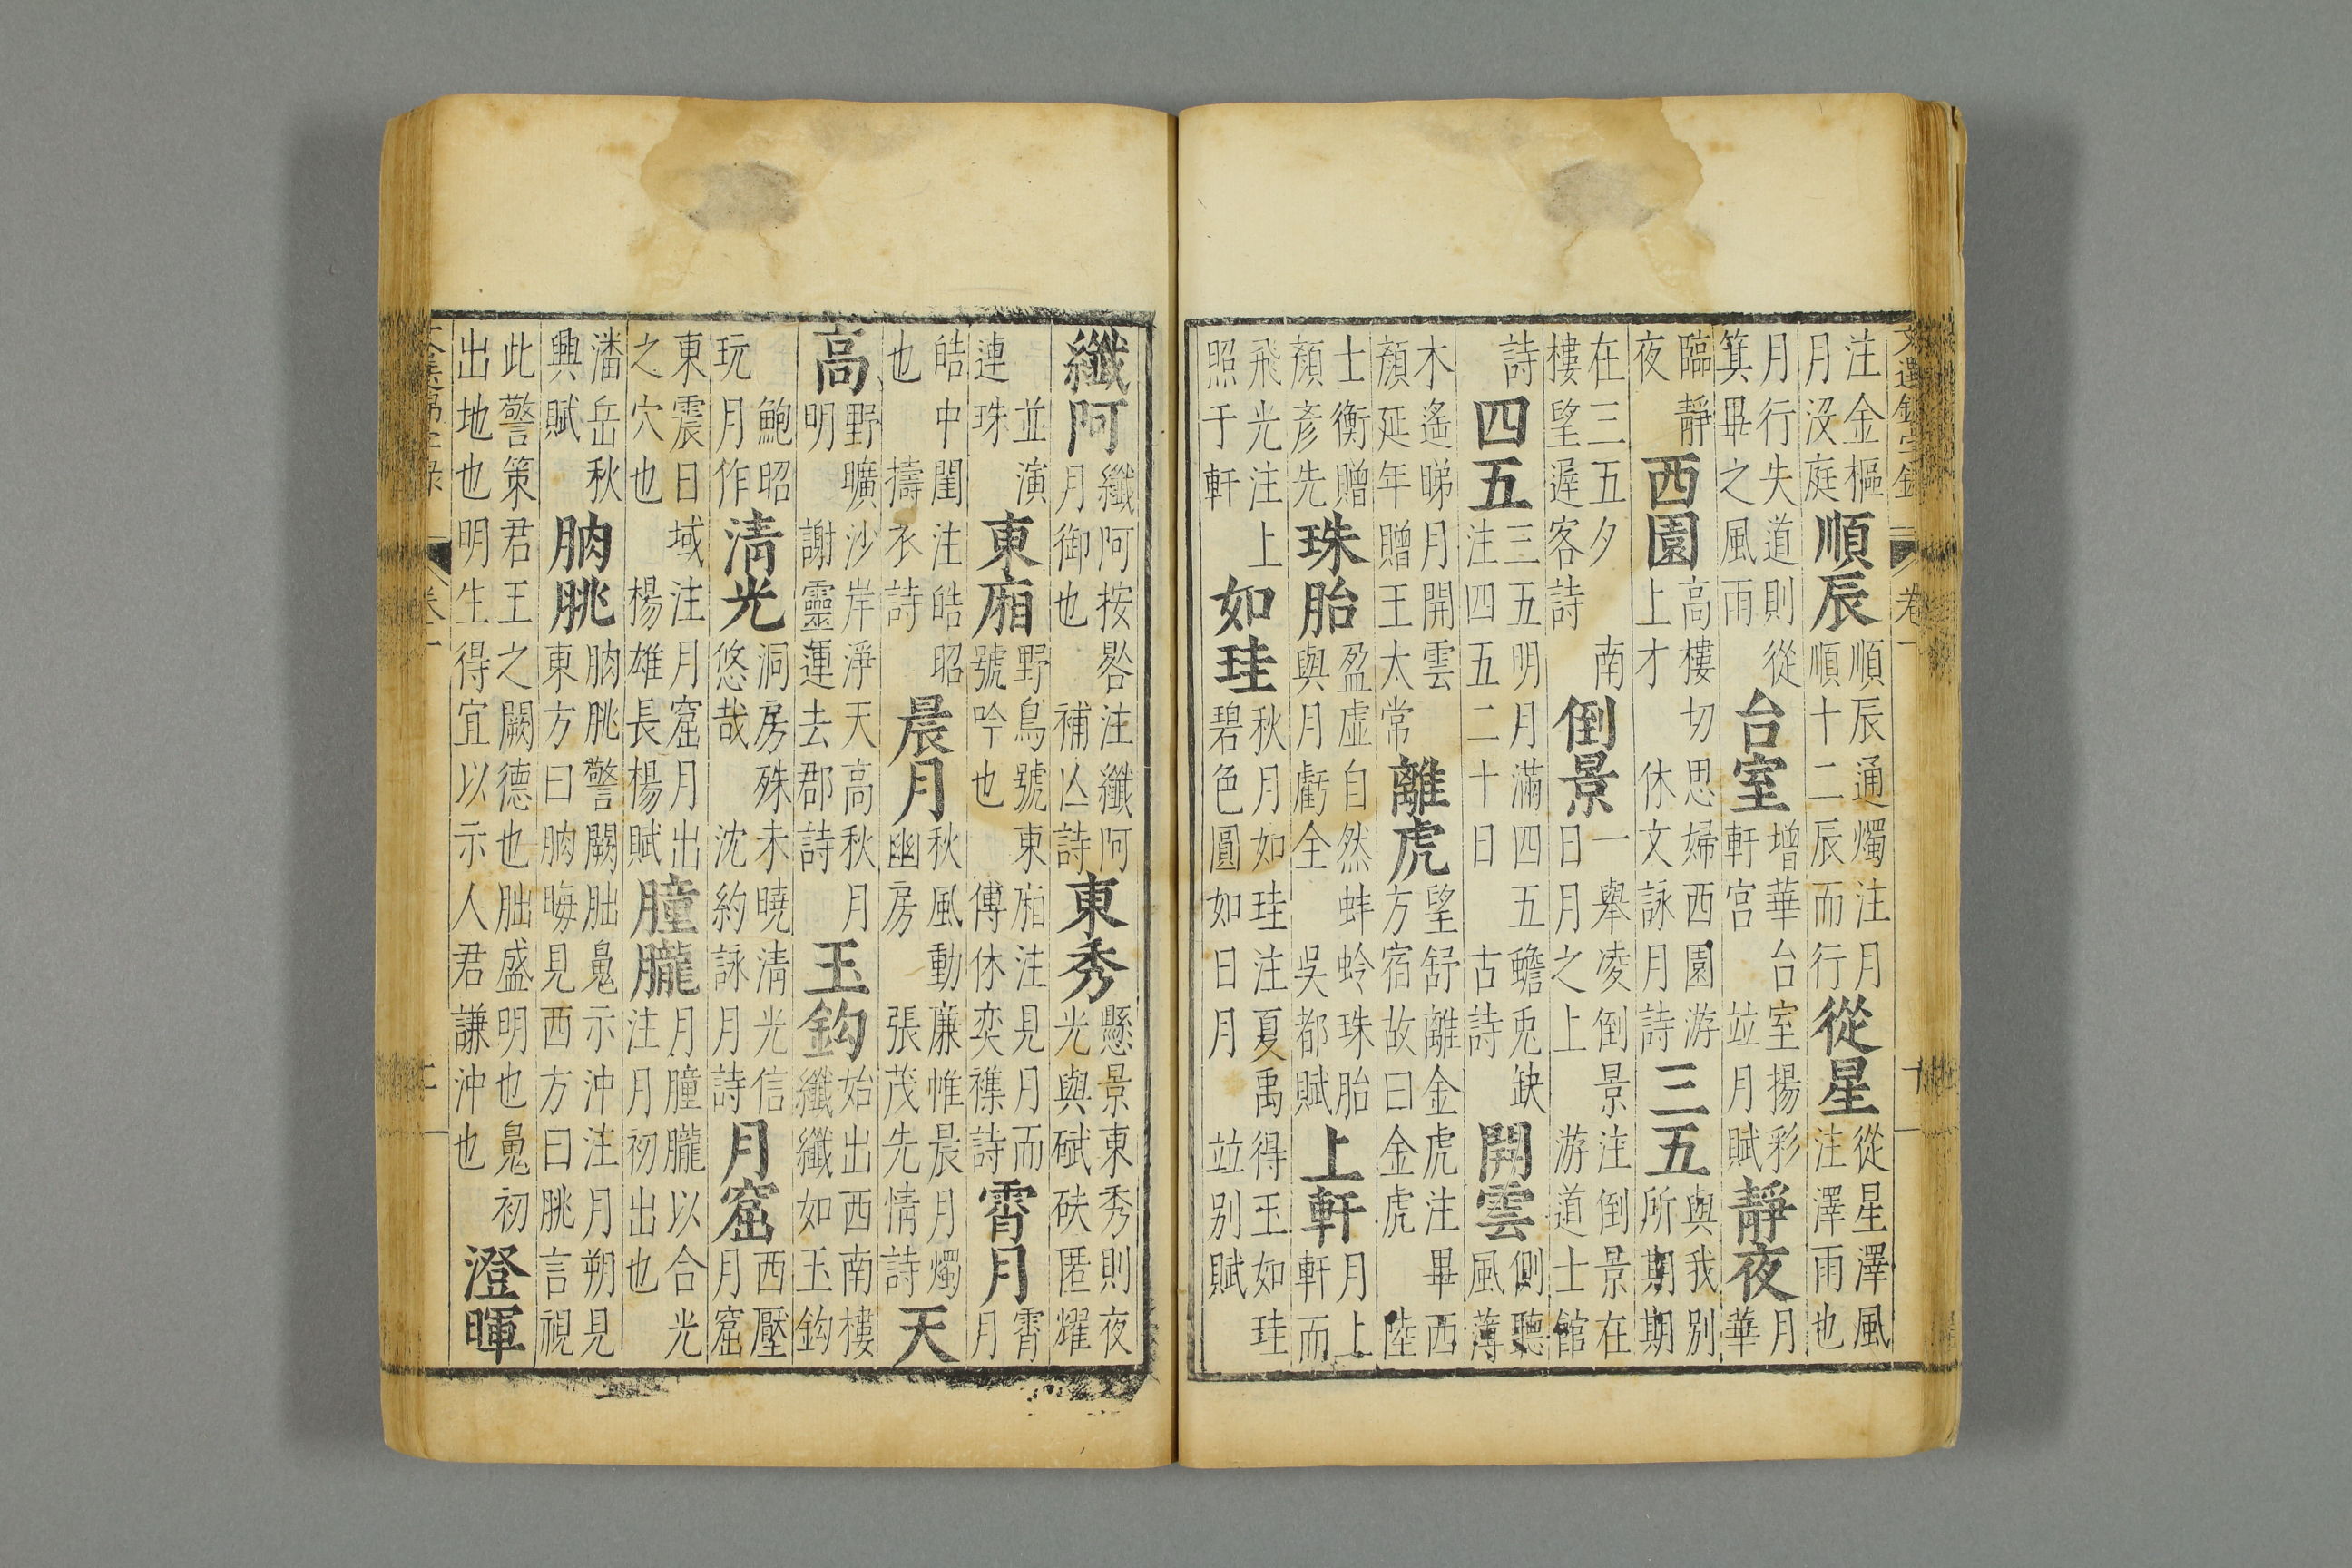 注金樞月沒庭順辰順辰通燭注月順十二辰而行從星從星澤風注澤雨也
月行失道則從箕畢之風雨台室增華台室揚彩軒宮竝月賦靜夜月華
臨靜夜西園高樓切思婦西園游上才休文詠月詩三五與我別所期期
在三五夕樓望遟客詩南倒景一舉凌倒景注倒景在日月之上游道士館
詩四五三五明月滿四五蟾兎缺注四五二十日古詩開雲側聽風薄
木遙睇月開雲顔延年贈王太常離虎望舒離金虎注畢西方宿故曰金虎陸
士衡贈顏彥先珠胎盈虛自然蚌蛉珠胎與月虧全吳都賦上軒月上軒而
飛光注上照于軒如珪秋月如珪注夏禹得玉如珪碧色圓如日月竝别賦
纖阿纖阿按晷注纖阿月御也補亾詩東秀懸景東秀則夜光與碔砆匿耀
並演連珠東廂野鳥號東廂注見月而號吟也傅休奕襍詩霄月霄月
皓中閨注皓昭也擣衣詩晨月秋風動㢘帷晨月燭幽房張茂先情詩天
高野曠沙岸淨天高秋月明謝靈運去郡詩玉鈎始出西南樓纖纖如玉鈎
鮑昭玩月作清光洞房殊未曉清光信悠哉沈約詠月詩月窟西壓月窟
東震日域注月窟月出之穴也楊雄長楊賦朣朧月朣朧以合光注月初出也
潘岳秋興賦朒朓朒朓警闕朏魄示沖注月朔見東方曰朒晦見西方曰朓言視
此警策君王之闕德也朏盛明也魄初出地也明生得宜以示人君謙沖也澄暉